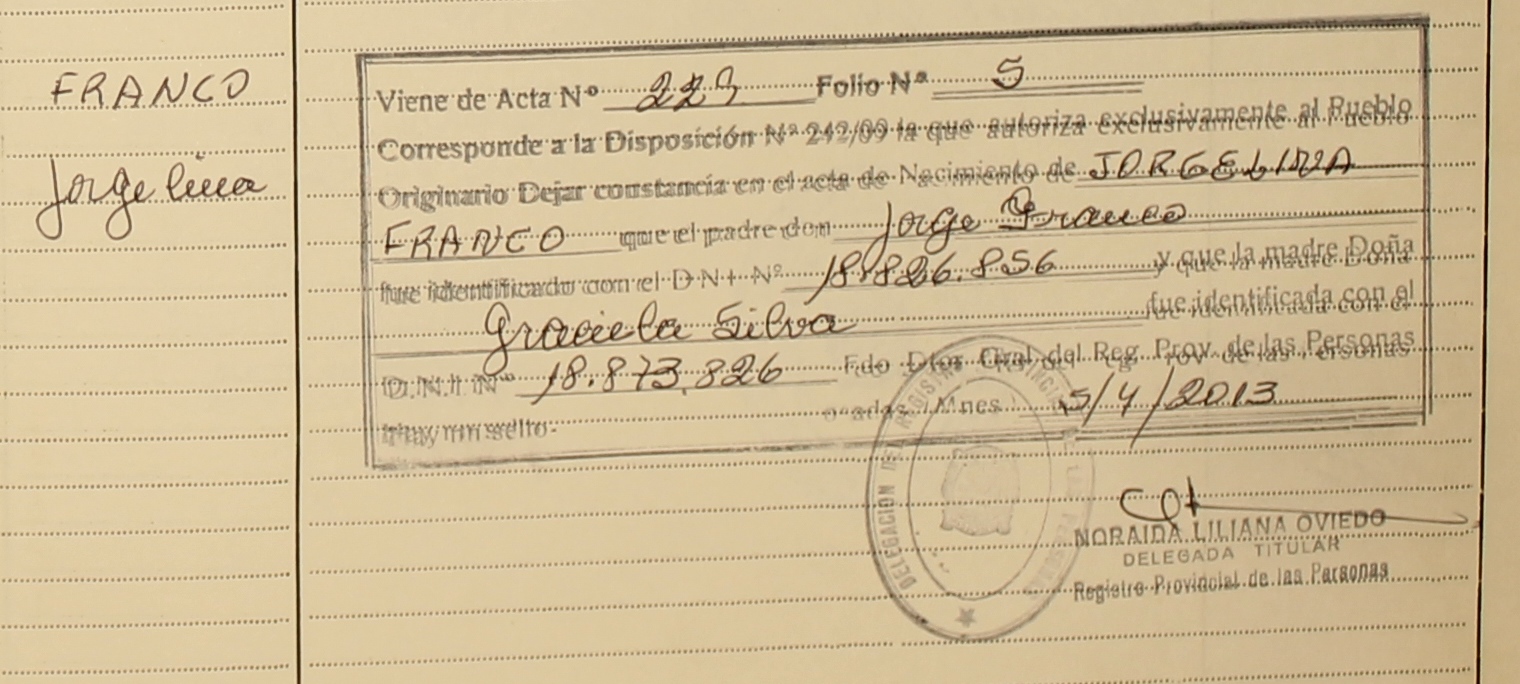 FRANCO
Jorgelina
Viene de Acta Nº 229 Folio Nº 5
Corresponde a la Disposición Nº 242/09 la que autoriza exclusivamente al Pueblo
Originario Dejar constancia en el acta de Nacimiento de JORGELINA
FRANCO que el padre don Jorge Franco
fue identificado con el D N I Nº 18.826.856 y que la madre Doña
Graciela Silva fue identificada con el
D.N.I Nº 18.873.826 Fdo Dtor Gral del Reg Prov de las Personas
Mnes 5/4/2013
Hay un sello.
DELEGACION DEL REGISTRO PROVINCIAL DE LAS PERSONAS
NORAIDA LILIANA OVIEDO
DELEGADA TITULAR
Registro Provincial de las Personas